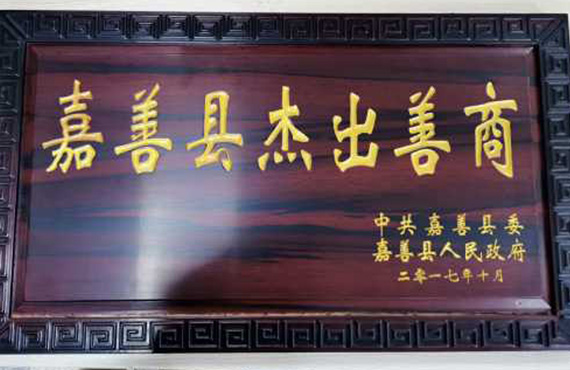 嘉善县杰出善商
中共嘉善县委
嘉善县人民政府
二零一七年十月